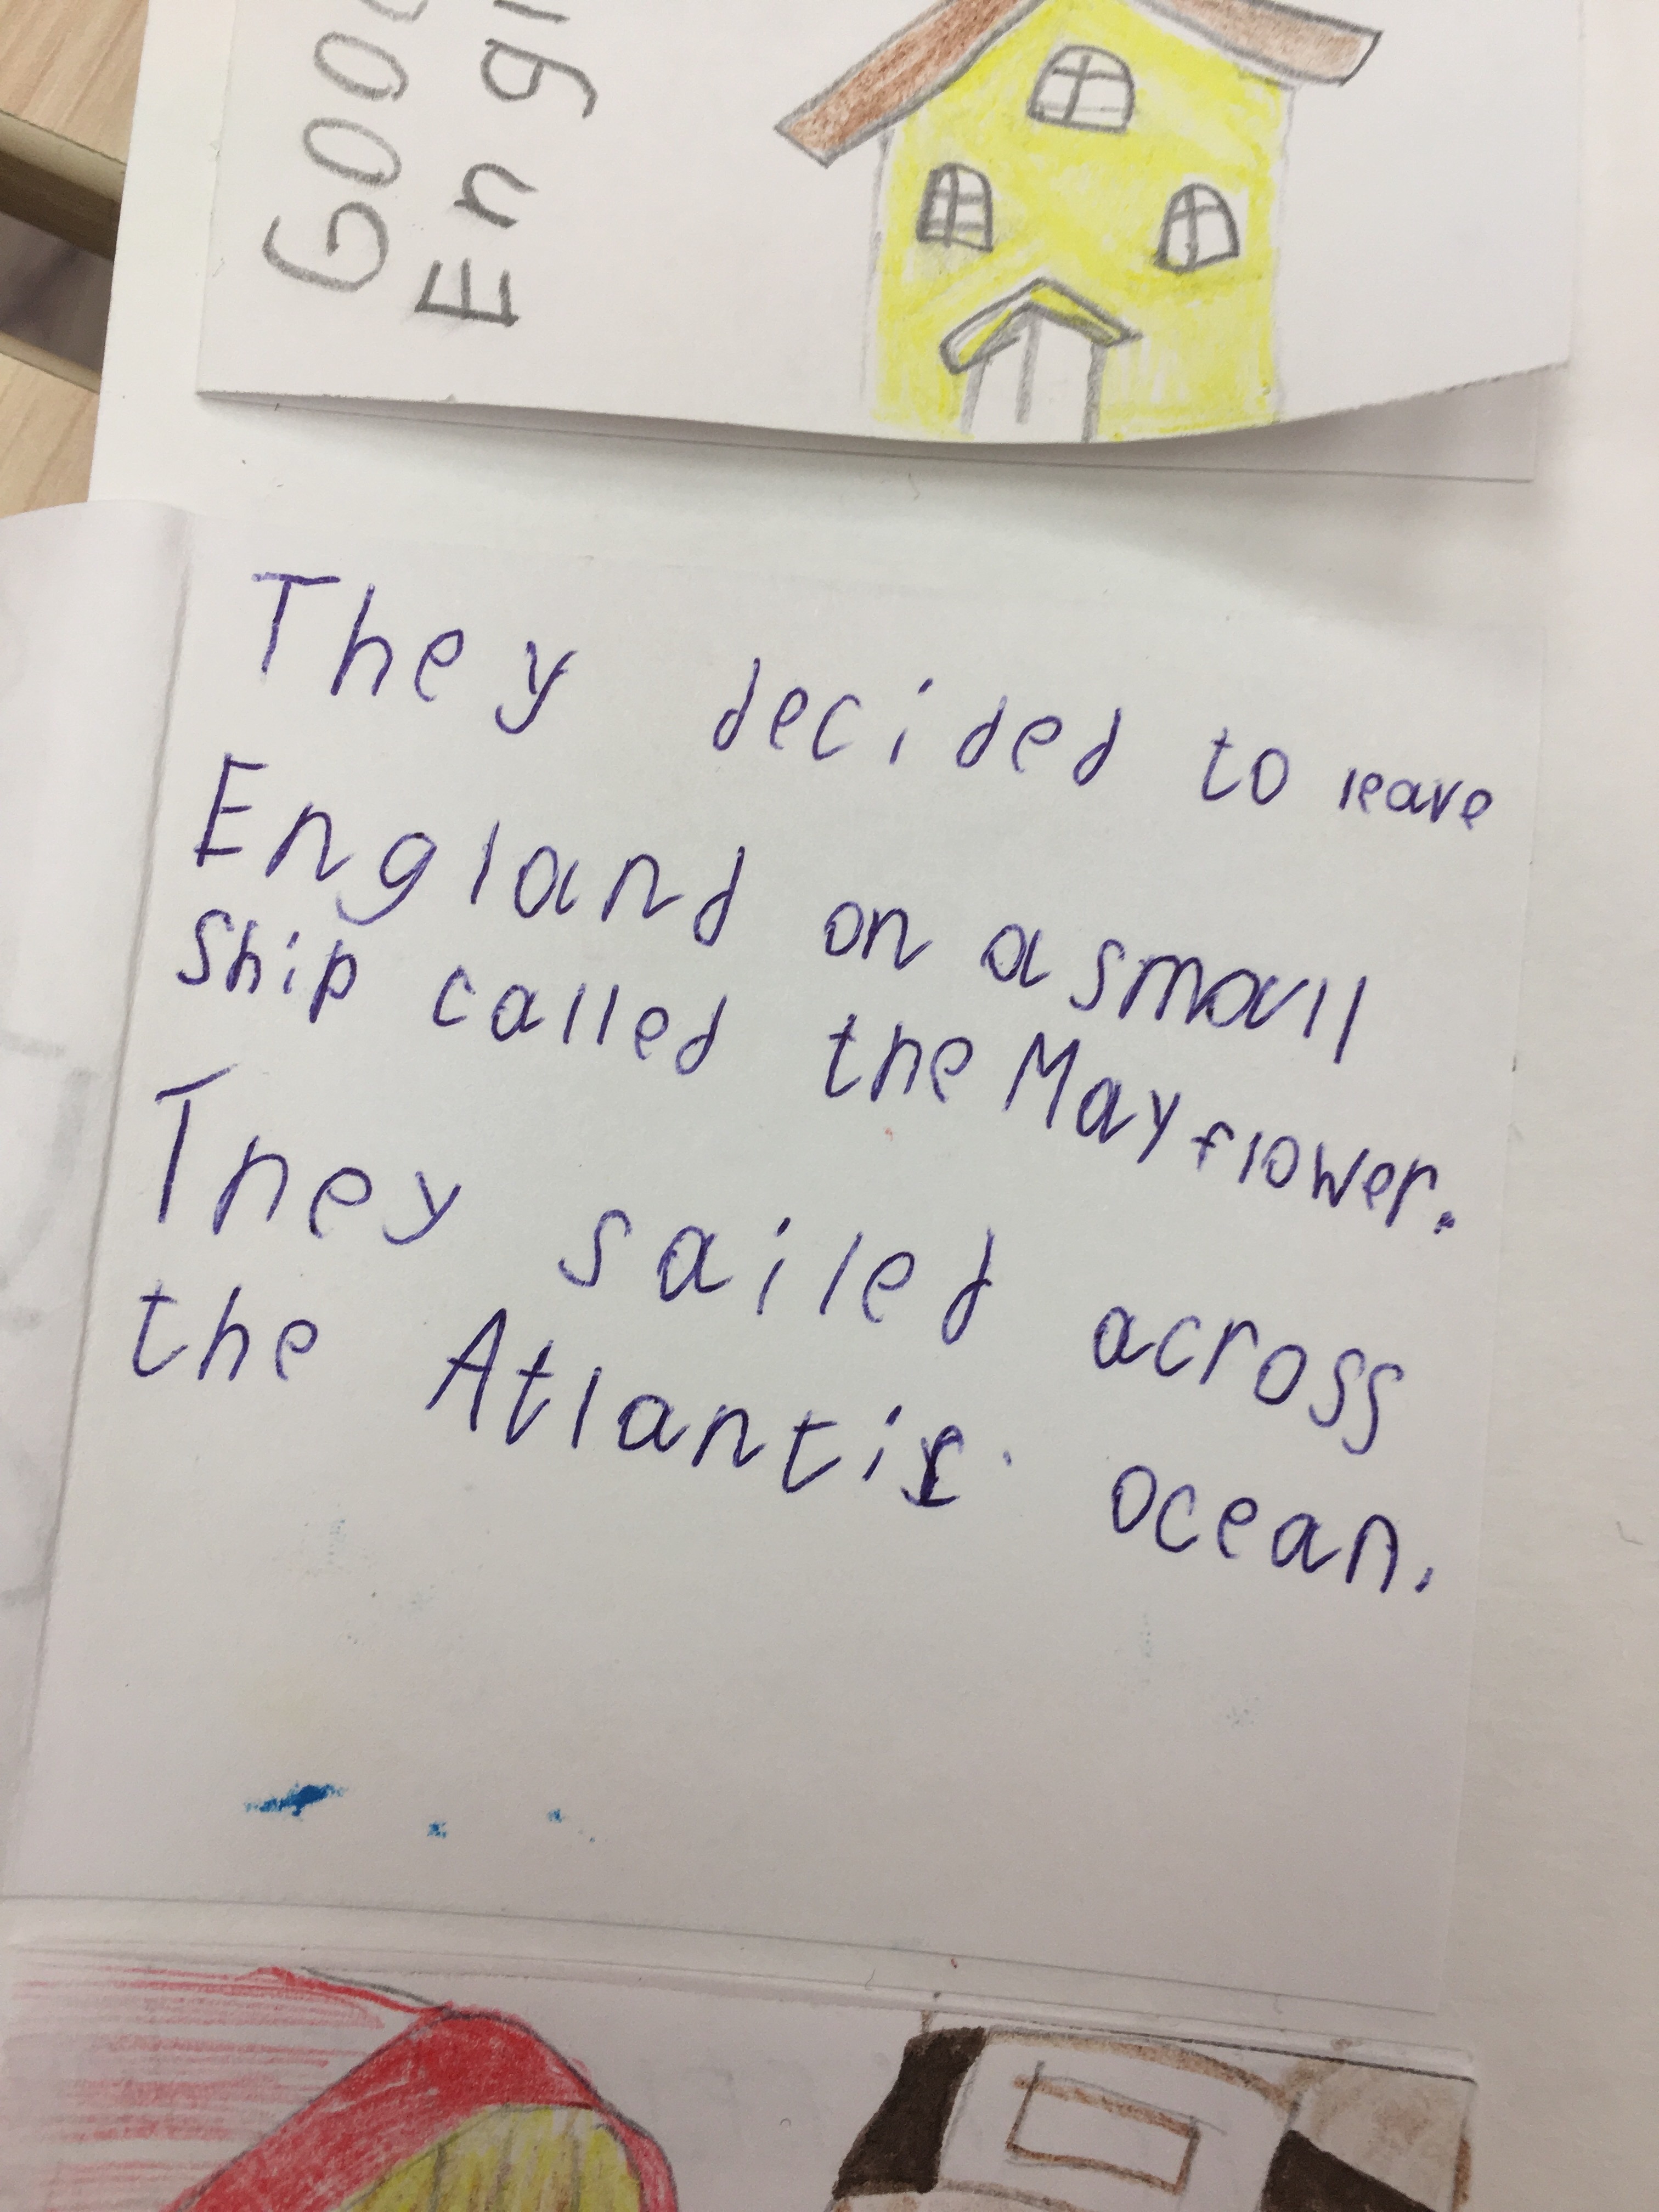 They decided to leave
England on a small
Ship called the Mayflower.
They sailed across
the Atlantic ocean.